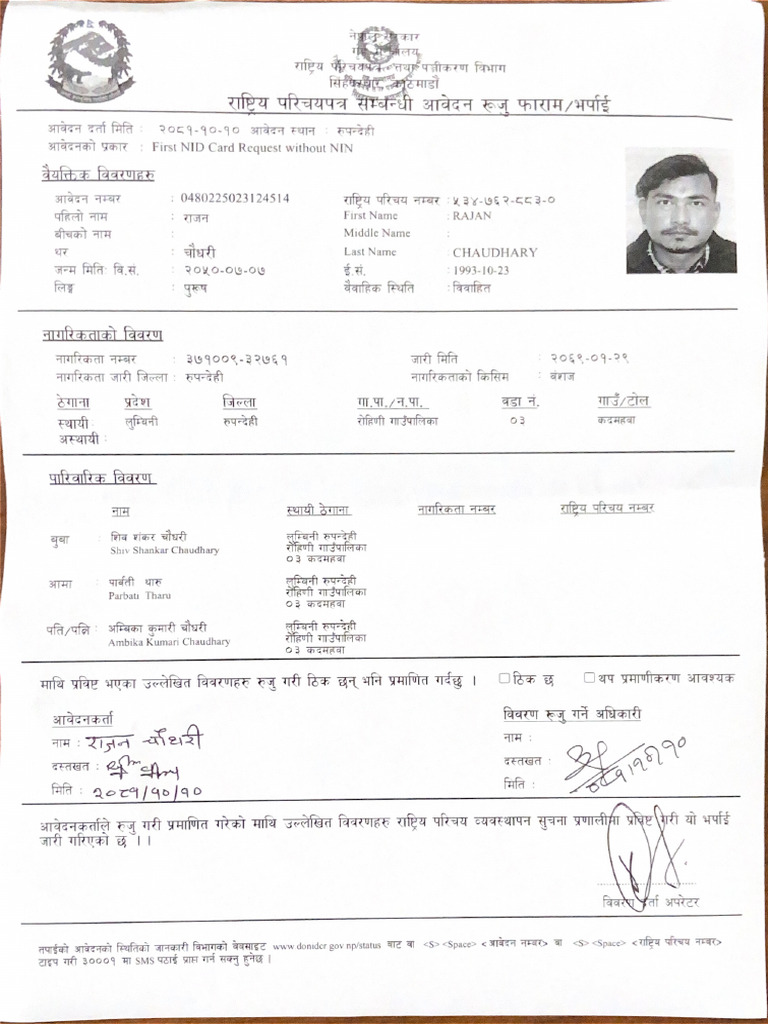 नेपाल सरकार
गृह मन्त्रालय
राष्ट्रिय परिचयपत्र तथा पञ्जीकरण विभाग
सिंहदरबार, काठमाडौं
राष्ट्रिय परिचयपत्र सम्बन्धी आवेदन रूजु फाराम/भर्पाई
आवेदन दर्ता मिति : २०८१-१०-१० आवेदन स्थान : रुपन्देही
आवेदनको प्रकार : First NID Card Request without NIN
वैयक्तिक विवरणहरु
आवेदन नम्बर : 0480225023124514 राष्ट्रिय परिचय नम्बर : ५३४-७६२-८८३-०
पहिलो नाम : राजन First Name : RAJAN
बीचको नाम : Middle Name :
थर : चौधरी Last Name : CHAUDHARY
जन्म मितिः वि.सं. : २०५०-०७-०७ ई.सं. : 1993-10-23
लिङ्ग : पुरूष वैवाहिक स्थिति : विवाहित
नागरिकताको विवरण
नागरिकता नम्बर : ३७१००९-३२७६१ जारी मिति : २०६९-०१-२९
नागरिकता जारी जिल्ला : रुपन्देही नागरिकताको किसिम : बंशज
ठेगाना प्रदेश जिल्ला गा.पा./न.पा. वडा नं. गाउँ/टोल
स्थायी : लुम्बिनी रुपन्देही रोहिणी गाउँपालिका ०३ कदमहवा
अस्थायी :
पारिवारिक विवरण
नाम स्थायी ठेगाना नागरिकता नम्बर राष्ट्रिय परिचय नम्बर
बुबा : शिव शंकर चौधरी लुम्बिनी रुपन्देही
Shiv Shankar Chaudhary रोहिणी गाउँपालिका
०३ कदमहवा
आमा : पार्वती थारु लुम्बिनी रुपन्देही
Parbati Tharu रोहिणी गाउँपालिका
०३ कदमहवा
पति/पत्नि : अम्बिका कुमारी चौधरी लुम्बिनी रुपन्देही
Ambika Kumari Chaudhary रोहिणी गाउँपालिका
०३ कदमहवा
माथि प्रविष्ट भएका उल्लेखित विवरणहरु रुजु गरी ठिक छन् भनि प्रमाणित गर्दछु । ठिक छ थप प्रमाणीकरण आवश्यक
आवेदनकर्ता विवरण रूजु गर्ने अधिकारी
नाम : राजन चौधरी नाम :
दस्तखत : दस्तखत :
मिति : २०८१/१०/१० मिति : २०८१/१०/१०
आवेदनकर्ताले रुजु गरी प्रमाणित गरेको माथि उल्लेखित विवरणहरु राष्ट्रिय परिचय व्यवस्थापन सुचना प्रणालीमा प्रविष्ट गरी यो भर्पाई
जारी गरिएको छ ।।
विवरण दर्ता अपरेटर
तपाईको आवेदनको स्थितिको जानकारी विभागको वेवसाइट www.donidcr.gov.np/status बाट वा <S> <Space> <आवेदन नम्बर> वा <S> <Space> <राष्ट्रिय परिचय नम्बर>
टाइप गरी ३०००१ मा SMS पठाई प्राप्त गर्न सक्नु हुनेछ ।